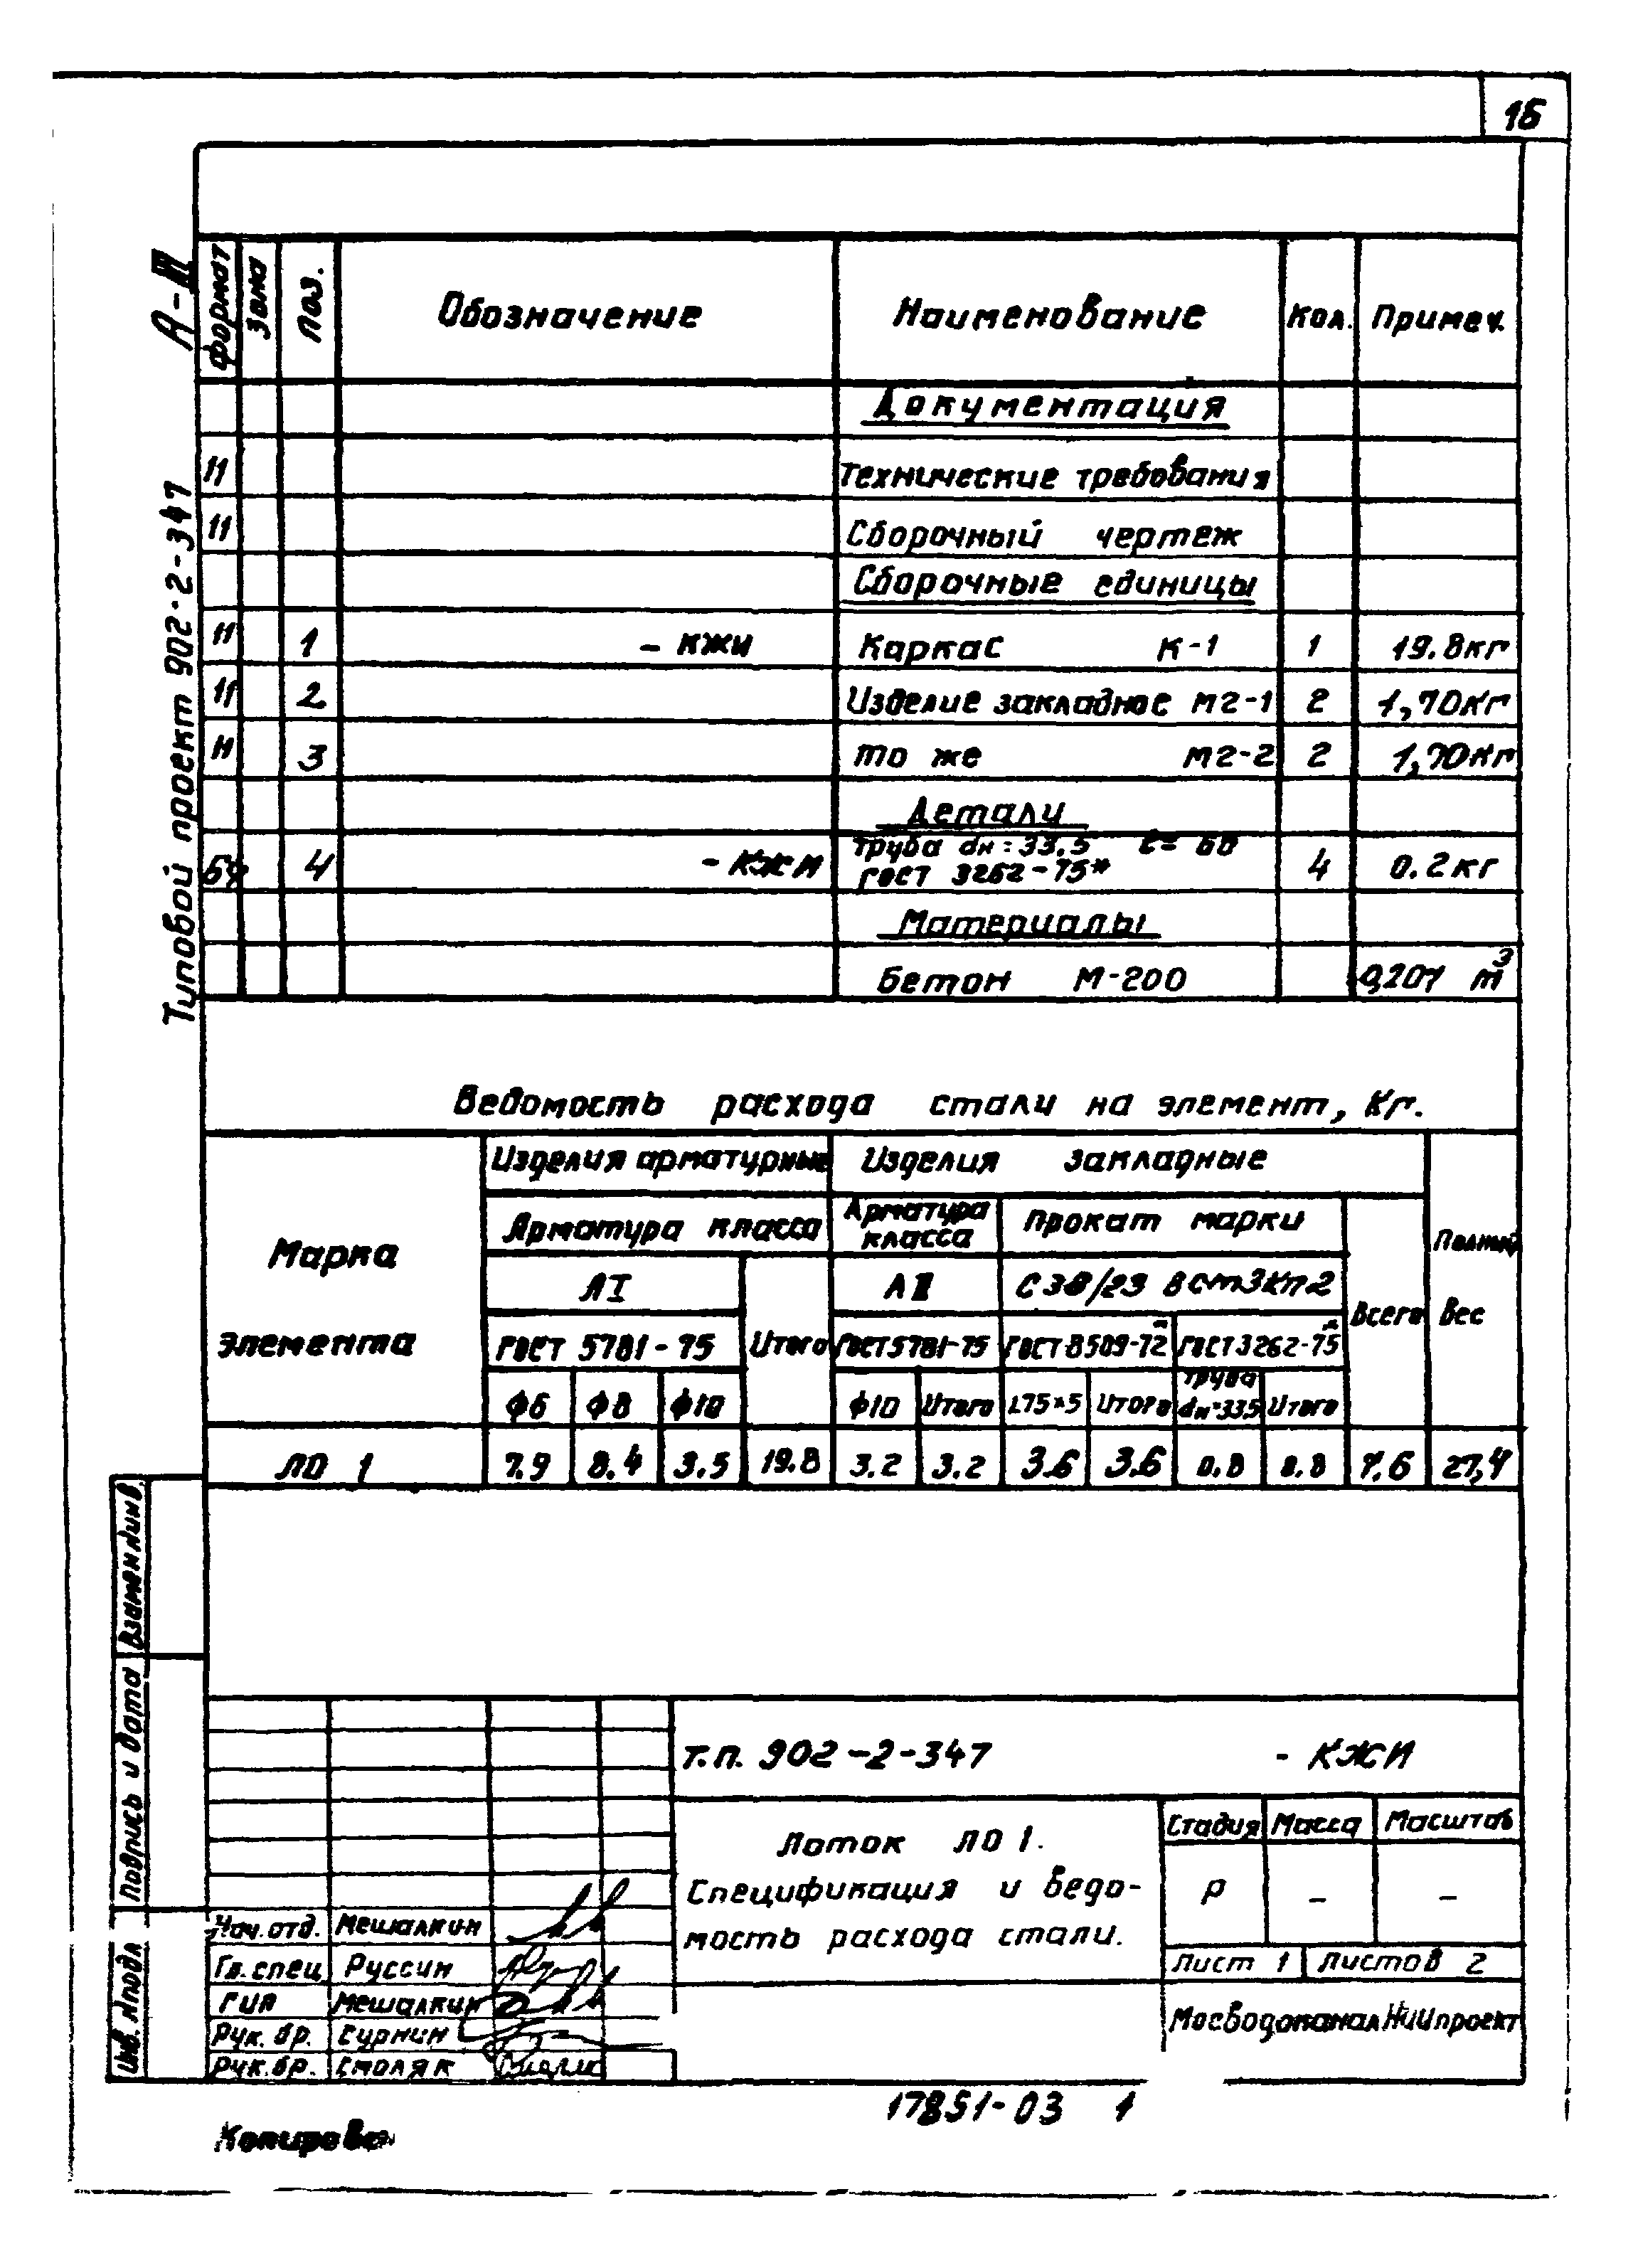 16
А-III
Типовой проект 902-2-347
Формат Зона Поз. Обозначение Наименование Кол. Примеч.
Документация
11 Технические требования
11 Сборочный чертеж
Сборочные единицы
11 1 - КЖИ Каркас К-1 1 19.8кг
11 2 Изделие закладное МГ-1 2 1,70кг
11 3 То же МГ-2 2 1,70кг
Детали
БЧ 4 - КЖИ Труба dн=33,5 ℓ= 60
ГОСТ 3262-75* 4 0.2кг
Материалы
Бетон М-200 0,207 м³
Ведомость расхода стали на элемент, кг.
Марка элемента Изделия арматурные Изделия закладные Полный вес
Арматура класса Арматура класса Прокат марки Всего
АI Итого АII С38/23 ВСт3кп2
ГОСТ 5781-75 ГОСТ 5781-75 ГОСТ 8509-72* ГОСТ 3262-75*
ф6 ф8 ф10 ф10 Итого L75×5 Итого Труба dн=33,5 Итого
ЛО 1 7.9 8.4 3.5 19.8 3.2 3.2 3.6 3.6 0.8 0.8 7.6 27,4
Взамен инв.
Подпись и дата
Инв. №подл
Т.п. 902-2-347 - КЖИ
Лоток ЛО 1.
Спецификация и ведо-
мость расхода стали.
Стадия Масса Масштаб
Р - -
Лист 1 Листов 2
МосводоканалНИИпроект
Нач. отд. Мешалкин
Гл. спец Руссин
ГИП Мешалкин
Рук. бр. Сурнин
Рук. бр. Смоляк
17851-03 1
Копировал